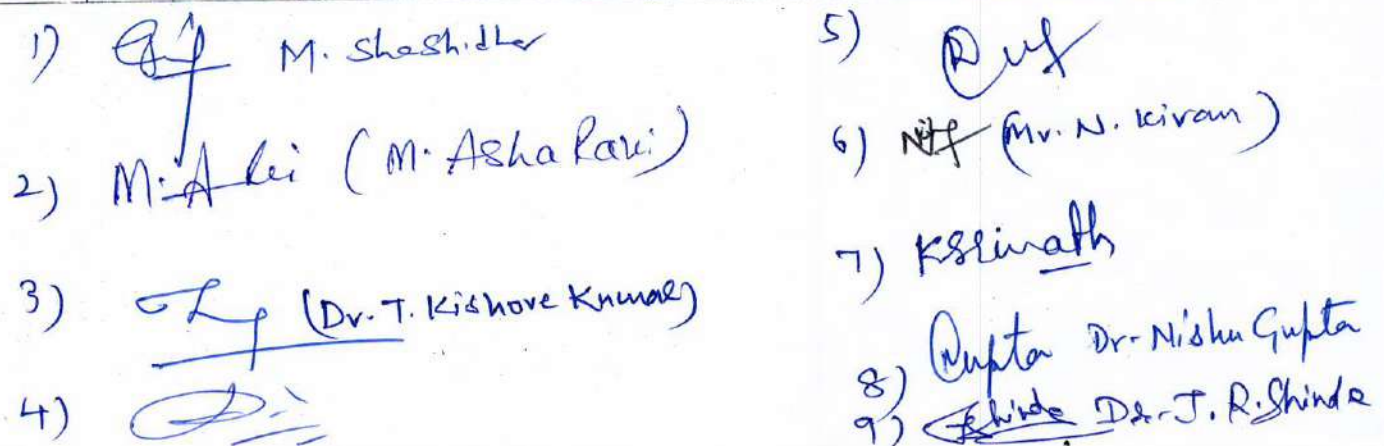 1) M. Shashidhar
2) M. A (M. Asha Rani)
3) (Dr. T. Kishore Kumar)
4)
5)
6) (Mr. N. Kiran)
7) KSrinath
8) Gupta Dr. Nishu Gupta
9) Shinde Dr. J. R. Shinde